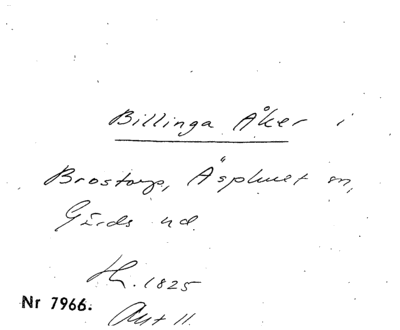 Billinga Åker i
Brostorp, Äsphult sn,
Gärds hd.
H. 1825
Nr 7966.
Avt 11.